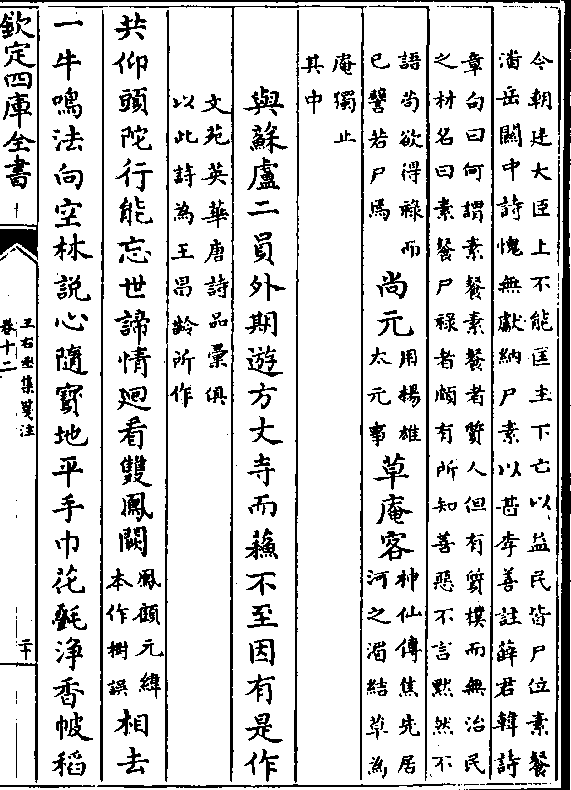 今朝廷大臣上不能匡主下亡以益民皆尸位素餐
潘岳關中詩愧無獻納尸素以甚李善註薛君韓詩
章句曰何謂素餐素餐者質人但有質樸而無治民
之材名曰素餐尸祿者頗有所知善惡不言黙然不
語尚欲得祿而
已譬若尸焉
尚元
用楊雄
太元事
草庵客
神仙傳焦先居
河之湄結草為
庵獨止
其中
與蘇盧二員外期遊方丈寺而蘓不至因有是作
文苑英華唐詩品彙俱
以此詩為王昌齡所作
共仰頭陀行能忘世諦情迴看雙鳳闕
鳳顧元緯
本作樹誤
相去
一牛鳴法向空林説心隨寳地平手巾花氎浄香帔稻
欽定四庫全書
王右丞集箋注
卷十二
二十